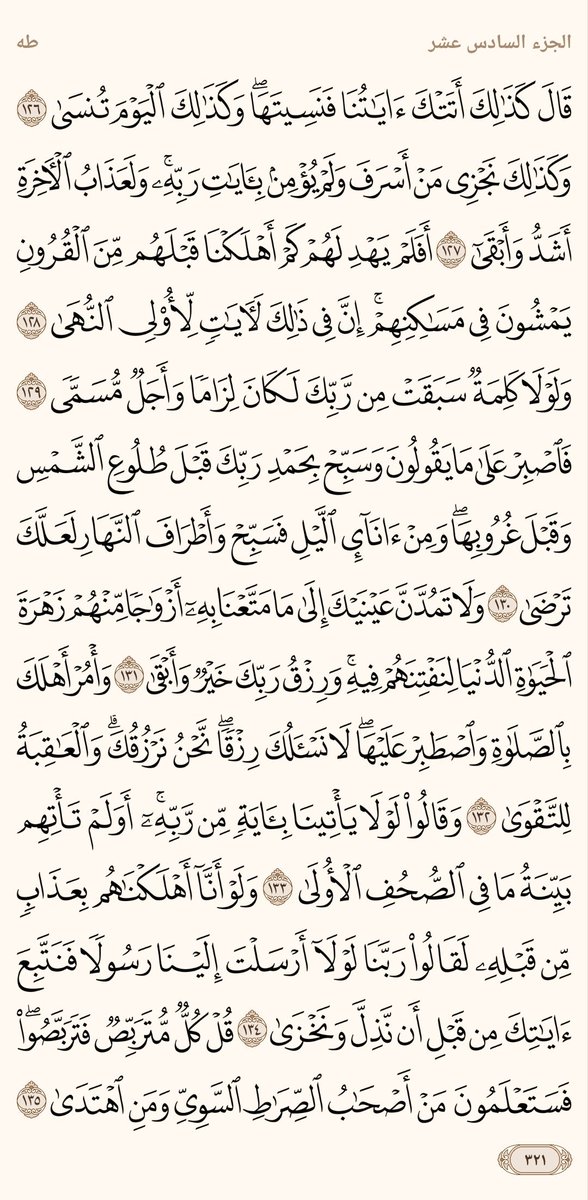 الجزء السادس عشر
طه
قَالَ كَذَٰلِكَ أَتَتۡكَ ءَايَٰتُنَا فَنَسِيتَهَاۖ وَكَذَٰلِكَ ٱلۡيَوۡمَ تُنسَىٰ ١٢٦
وَكَذَٰلِكَ نَجۡزِي مَنۡ أَسۡرَفَ وَلَمۡ يُؤۡمِنۢ بِـَٔايَٰتِ رَبِّهِۦۚ وَلَعَذَابُ ٱلۡأٓخِرَةِ
أَشَدُّ وَأَبۡقَىٰٓ ١٢٧ أَفَلَمۡ يَهۡدِ لَهُمۡ كَمۡ أَهۡلَكۡنَا قَبۡلَهُم مِّنَ ٱلۡقُرُونِ
يَمۡشُونَ فِي مَسَٰكِنِهِمۡۚ إِنَّ فِي ذَٰلِكَ لَأٓيَٰتٖ لِّأُوْلِي ٱلنُّهَىٰ ١٢٨
وَلَوۡلَا كَلِمَةٞ سَبَقَتۡ مِن رَّبِّكَ لَكَانَ لِزَامٗا وَأَجَلٞ مُّسَمّٗى ١٢٩
فَٱصۡبِرۡ عَلَىٰ مَا يَقُولُونَ وَسَبِّحۡ بِحَمۡدِ رَبِّكَ قَبۡلَ طُلُوعِ ٱلشَّمۡسِ
وَقَبۡلَ غُرُوبِهَاۖ وَمِنۡ ءَانَآيِٕ ٱلَّيۡلِ فَسَبِّحۡ وَأَطۡرَافَ ٱلنَّهَارِ لَعَلَّكَ
تَرۡضَىٰ ١٣٠ وَلَا تَمُدَّنَّ عَيۡنَيۡكَ إِلَىٰ مَا مَتَّعۡنَا بِهِۦٓ أَزۡوَٰجٗا مِّنۡهُمۡ زَهۡرَةَ
ٱلۡحَيَوٰةِ ٱلدُّنۡيَا لِنَفۡتِنَهُمۡ فِيهِۚ وَرِزۡقُ رَبِّكَ خَيۡرٞ وَأَبۡقَىٰ ١٣١ وَأۡمُرۡ أَهۡلَكَ
بِٱلصَّلَوٰةِ وَٱصۡطَبِرۡ عَلَيۡهَاۖ لَا نَسۡـَٔلُكَ رِزۡقٗاۖ نَّحۡنُ نَرۡزُقُكَۗ وَٱلۡعَٰقِبَةُ
لِلتَّقۡوَىٰ ١٣٢ وَقَالُواْ لَوۡلَا يَأۡتِينَا بِـَٔايَةٖ مِّن رَّبِّهِۦٓۚ أَوَلَمۡ تَأۡتِهِم
بَيِّنَةُ مَا فِي ٱلصُّحُفِ ٱلۡأُولَىٰ ١٣٣ وَلَوۡ أَنَّآ أَهۡلَكۡنَٰهُم بِعَذَابٖ
مِّن قَبۡلِهِۦ لَقَالُواْ رَبَّنَا لَوۡلَآ أَرۡسَلۡتَ إِلَيۡنَا رَسُولٗا فَنَتَّبِعَ
ءَايَٰتِكَ مِن قَبۡلِ أَن نَّذِلَّ وَنَخۡزَىٰ ١٣٤ قُلۡ كُلّٞ مُّتَرَبِّصٞ فَتَرَبَّصُواْۖ
فَسَتَعۡلَمُونَ مَنۡ أَصۡحَٰبُ ٱلصِّرَٰطِ ٱلسَّوِيِّ وَمَنِ ٱهۡتَدَىٰ ١٣٥
٣٢١